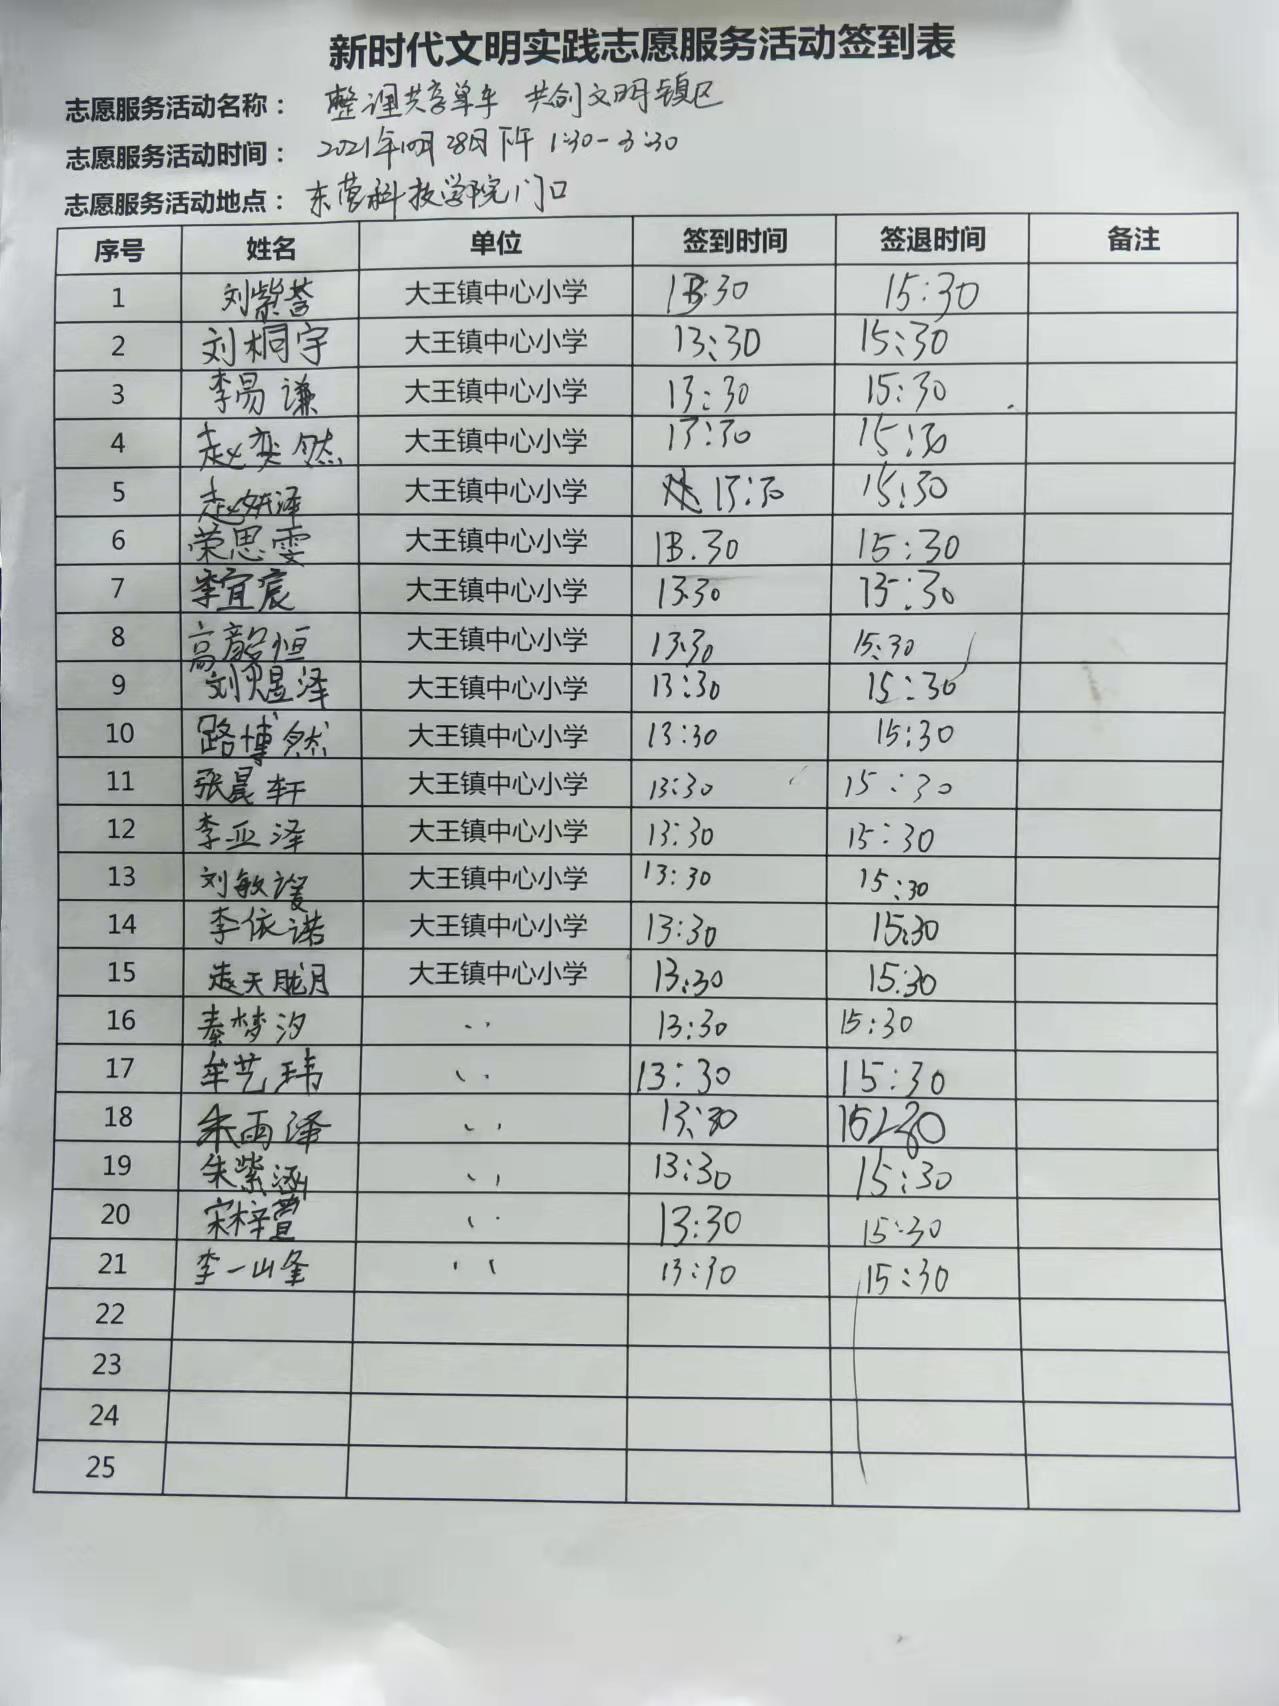 新时代文明实践志愿服务活动签到表
志愿服务活动名称： 整理共享单车 共创文明镇区
志愿服务活动时间： 2021年10月28日下午 1:30-3:30
志愿服务活动地点： 东营科技学院门口
序号 姓名 单位 签到时间 签退时间 备注
1 刘紫萱 大王镇中心小学 13:30 15:30
2 刘桐宇 大王镇中心小学 13:30 15:30
3 李易谦 大王镇中心小学 13:30 15:30
4 赵奕然 大王镇中心小学 13:30 15:30
5 赵妍泽 大王镇中心小学 13:30 15:30
6 荣思雯 大王镇中心小学 13.30 15:30
7 李宜宸 大王镇中心小学 13:30 15:30
8 高 恒 大王镇中心小学 13:30 15:30
9 刘煜泽 大王镇中心小学 13:30 15:30
10 路博然 大王镇中心小学 13:30 15:30
11 张晨轩 大王镇中心小学 13:30 15:30
12 李亚泽 大王镇中心小学 13:30 15:30
13 刘敏 大王镇中心小学 13:30 15:30
14 李依诺 大王镇中心小学 13:30 15:30
15 天 月 大王镇中心小学 13:30 15:30
16 秦梦汐 〃 13:30 15:30
17 牟艺玮 〃 13:30 15:30
18 朱雨泽 〃 13:30
19 朱紫涵 〃 13:30 15:30
20 宋梓萱 〃 13:30 15:30
21 李一峰 〃 13:30 15:30
22
23
24
25